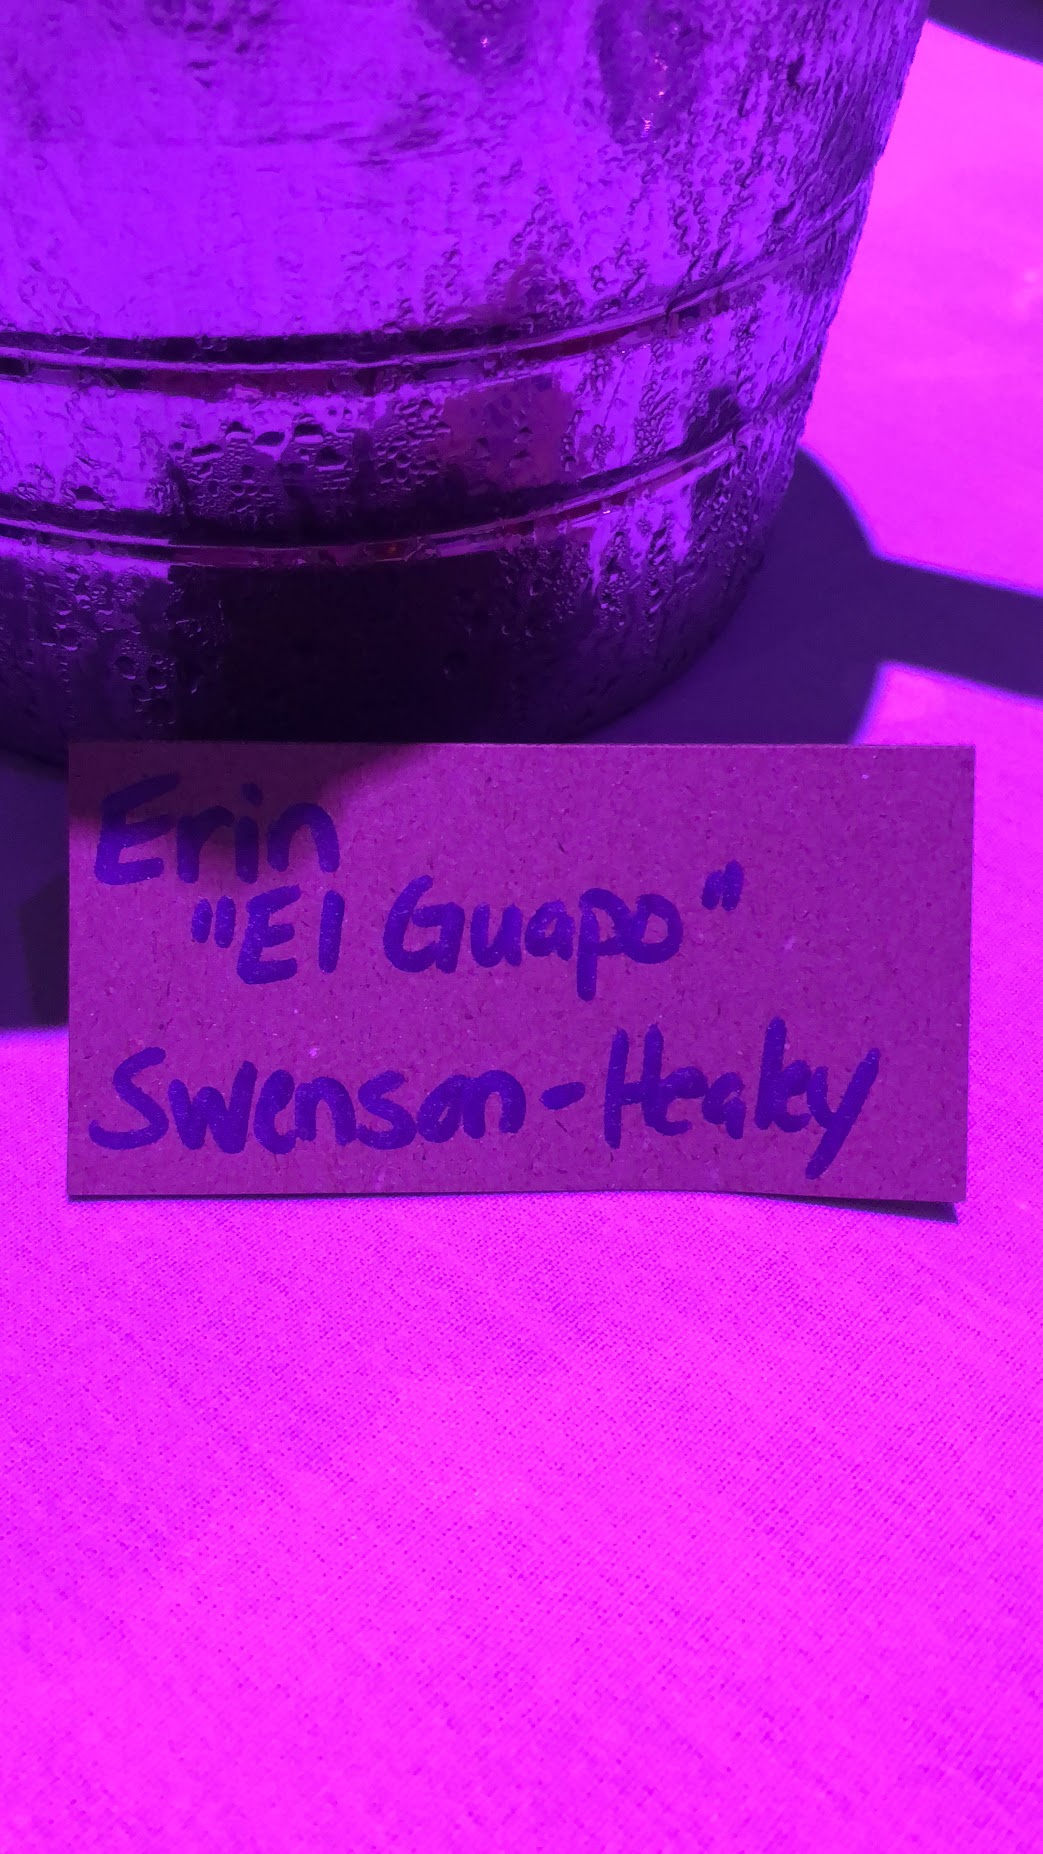 Erin
"El Guapo"
Swenson-Healey